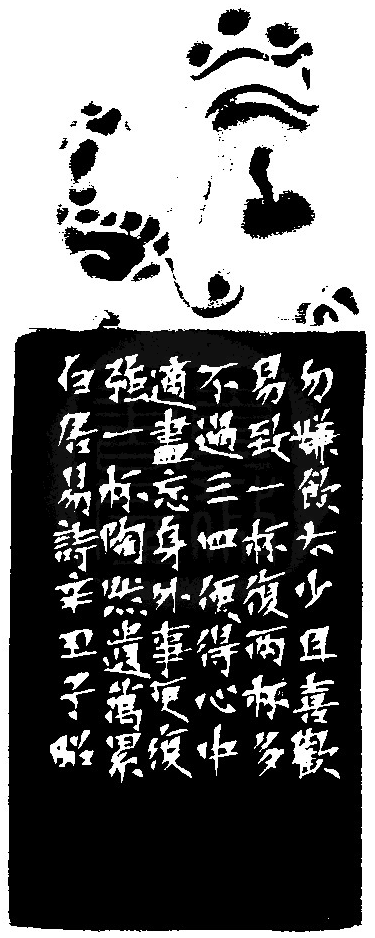 勿嫌飲太少且喜歡
易致一杯復兩杯多
不過三四便得心中
適盡忘身外事更復
強一杯陶然遺萬累
白居易詩辛丑子昭